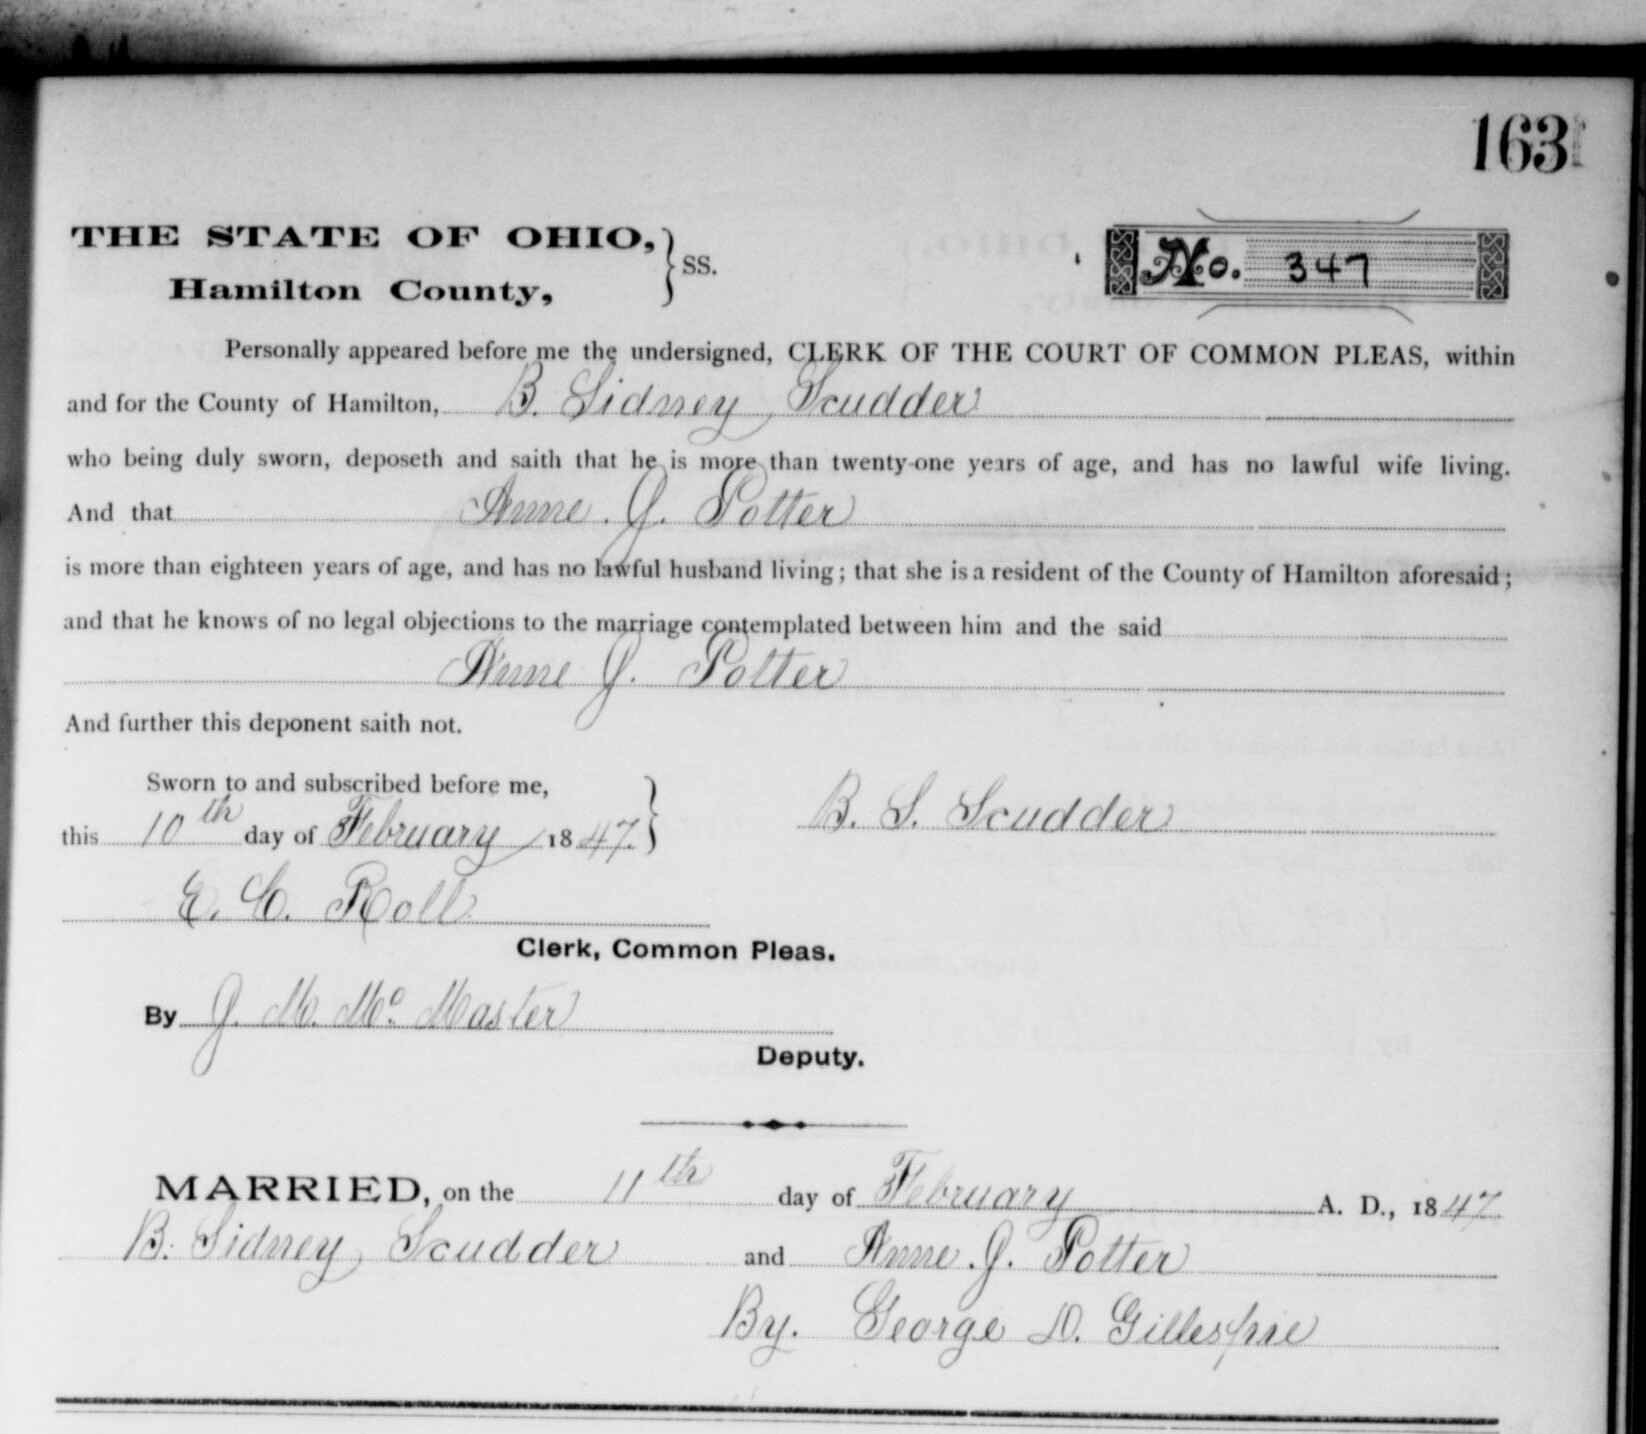 163
THE STATE OF OHIO,
Hamilton County, } SS.
No. 347
Personally appeared before me the undersigned, CLERK OF THE COURT OF COMMON PLEAS, within
and for the County of Hamilton, B. Sidney Scudder
who being duly sworn, deposeth and saith that he is more than twenty-one years of age, and has no lawful wife living.
And that Anne. J. Potter
is more than eighteen years of age, and has no lawful husband living; that she is a resident of the County of Hamilton aforesaid;
and that he knows of no legal objections to the marriage contemplated between him and the said
Anne J. Potter
And further this deponent saith not.
Sworn to and subscribed before me,
this 10th day of February 1847. } B. S. Scudder
E. C. Roll
Clerk, Common Pleas.
By J. M. Mc. Master
Deputy.
MARRIED, on the 11th day of February A. D., 1847.
B. Sidney Scudder and Anne. J. Potter
By. George D. Gillespie